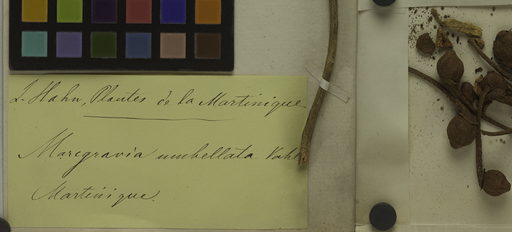 L. Hahn, Plantes de la Martinique
Marcgravia umbellata Vahl
Martinique.